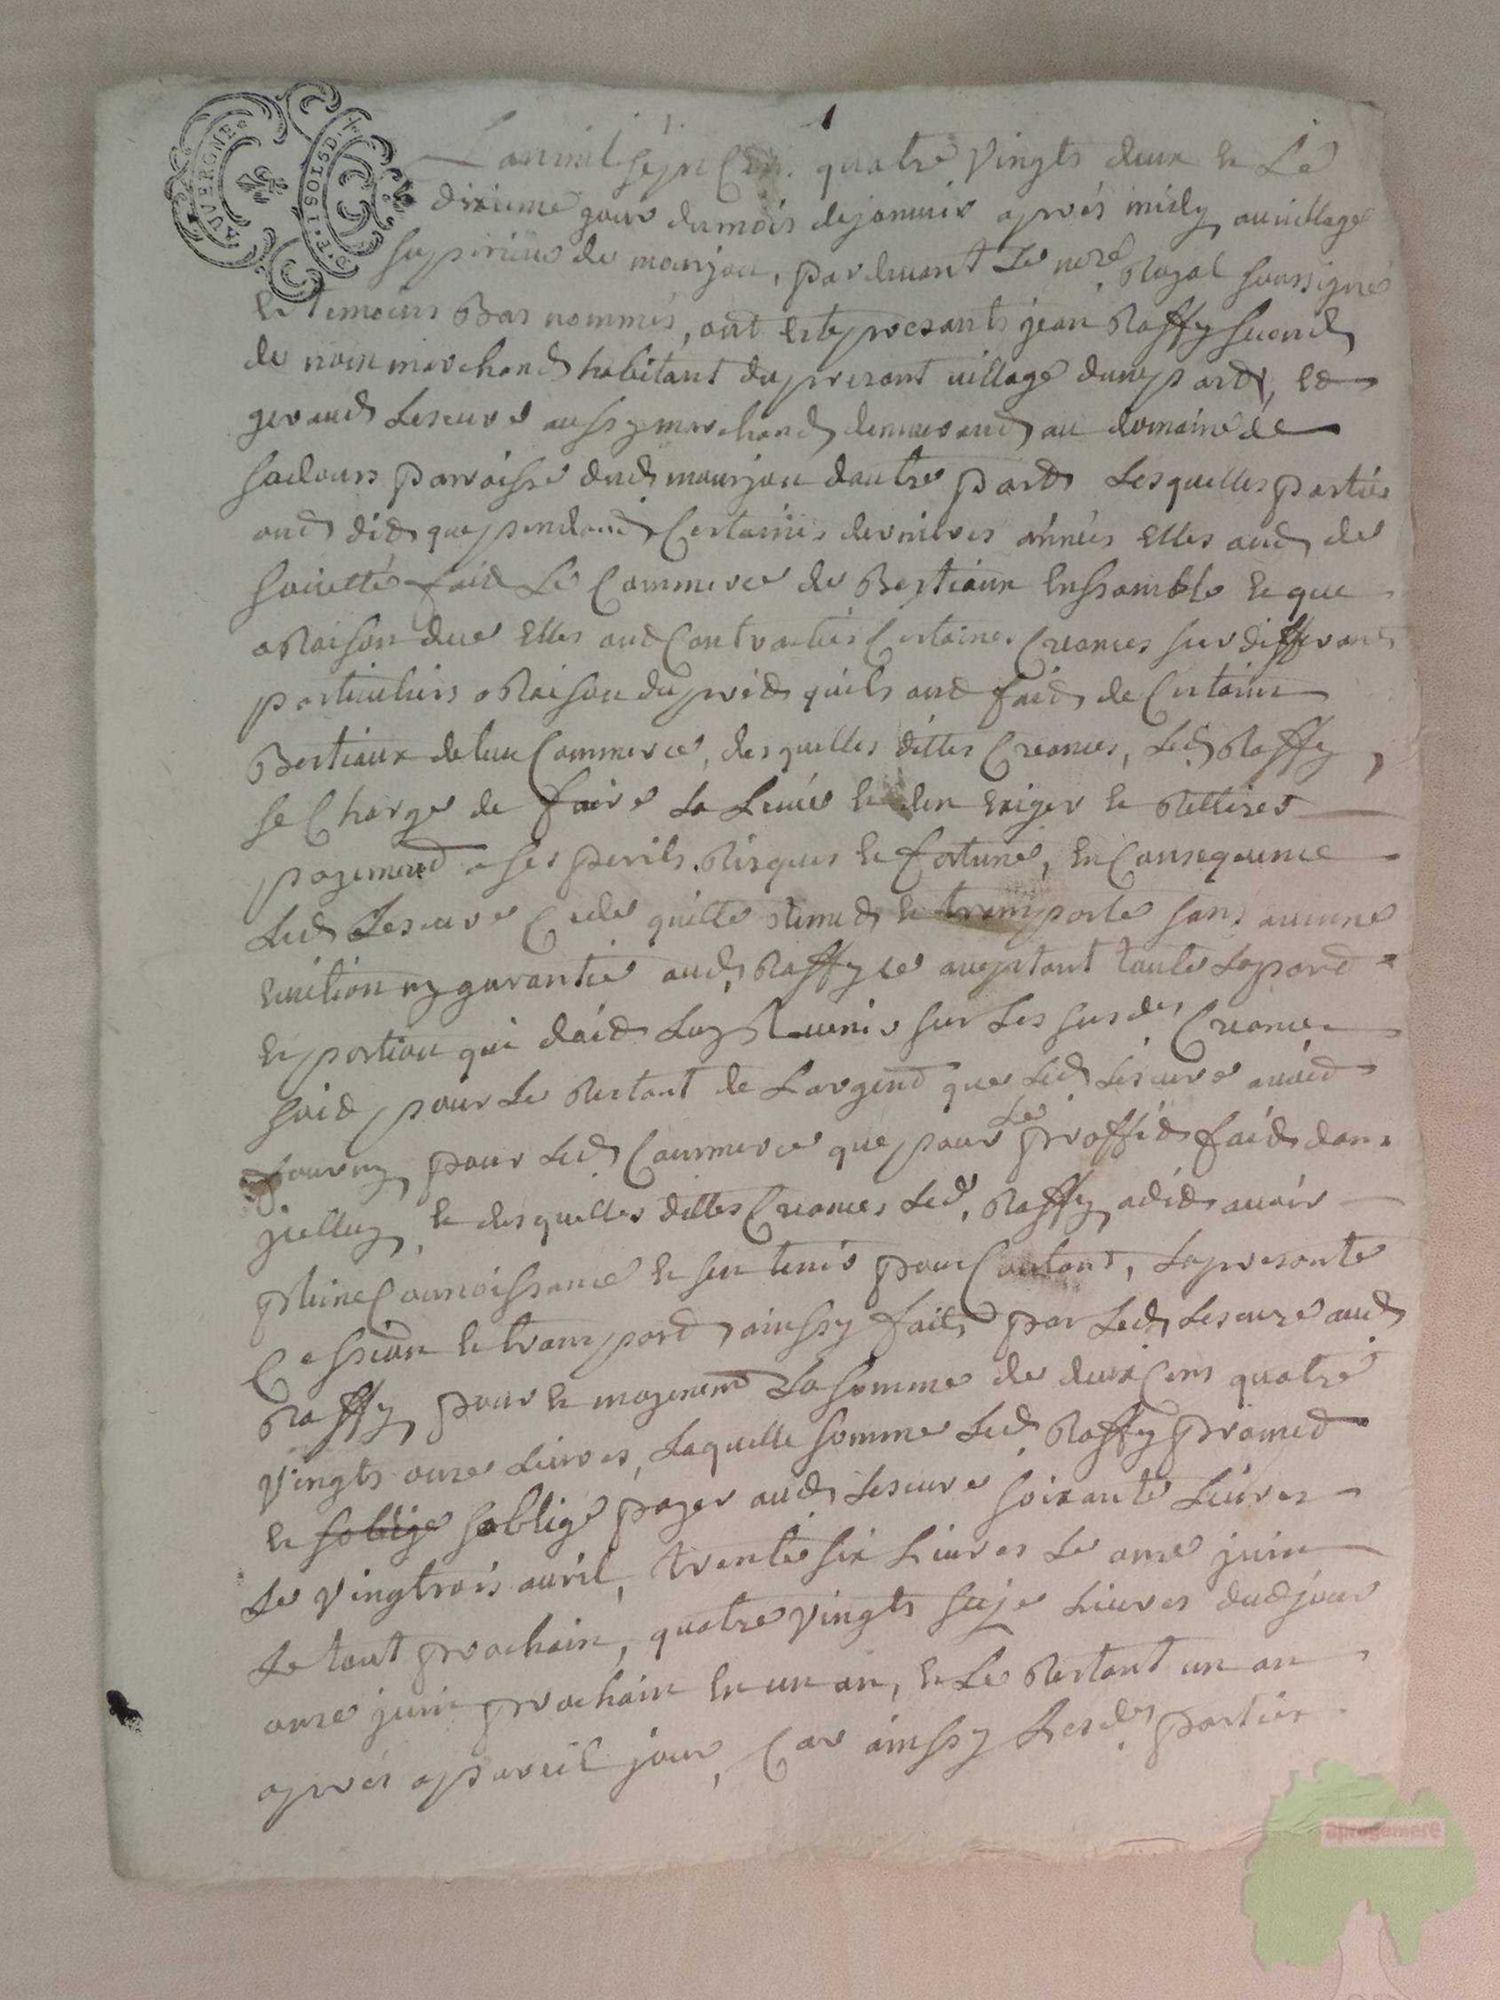 1
AUVERGNE
D.T. 1 SOL 5 D.
L'an mil sept Cen. quatre vingts deux et Le
dixieme jour du mois de janvier aprés midy au village
superieur de mourjou, pardevant Le nore Royal soussigné
et temoins Bas nommés, ont esté presants jean Raffy second
de nom marchand habitant du presant village dune part, et
geraud Lescure aussy marchand demeurand au domaine de
sadours paroisse dud. mourjou dautre part Lesquelles parties
ont dit que pendant Certaines dernieres années elles ont de
societté fait Le Commerce de Bestiaux Enssamble et que
a Raison de ce elles ont Contractés Certaines Creances sur differans
particuliers a Raison du prêt quils ont fait de Certains
Bestiaux de leur Commerce, desquelles dittes Creances, Led. Raffy
se Charge de faire La Levée et den Exiger et Rettirer
payement a ses perils Risques et fortune, En Consequence
Led. Lescure Cede quitte remet et transporte sans aucune
Eviction ny garantie aud. Raffy ce aceptant toute La part
et portion qui doit Luy Revenir sur Les susdes Creances
soit pour Le Restant de Largent que Led. Lescure avoit
fourny pour Led. Commerce que pour Les proffits faits dans
jcelluy, et desquelles dittes Creances Led. Raffy a dit avoir
pleine Connoissance et sen tenir pour Contant, La presante
Cession et transport ainssy fait par Led. Lescure aud.
Raffy pour et moyenant La somme de deux Cens quatre
vingts onze Livres, Laquelle somme Led. Raffy promet
et soblige soblige payer aud. Lescure soixante Livres
Le vingtrois avril, trente six Livres Le onze juin
Le tout prochain, quatre vingts seije Livres dud. jour
onze juin prochain En un an, et Le Restant un an
aprés a pareil jour, Car ainssy Lesdes parties
aprogemere